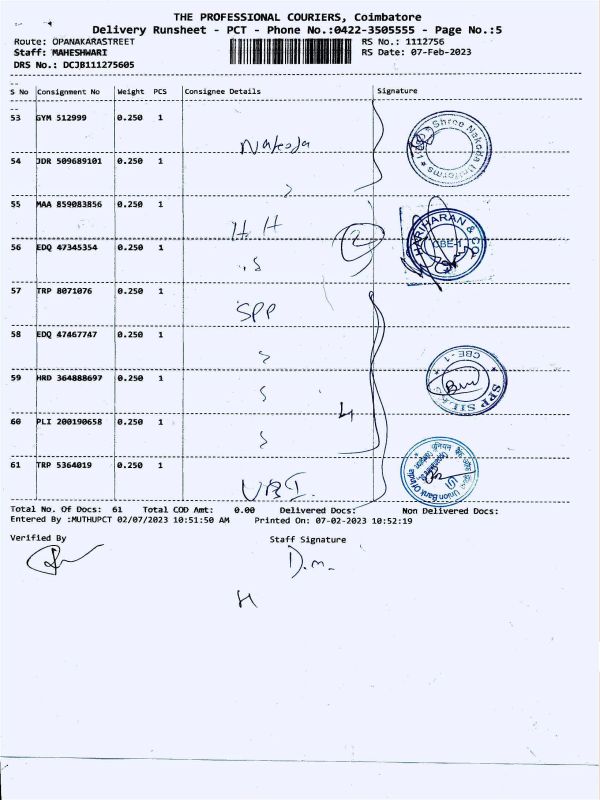 THE PROFESSIONAL COURIERS, Coimbatore
Delivery Runsheet - PCT - Phone No.:0422-3505555 - Page No.:5
Route: OPANAKARASTREET
RS No.: 1112756
Staff: MAHESHWARI
RS Date: 07-Feb-2023
DRS No.: DCJB111275605
S No Consignment No Weight PCS Consignee Details Signature
53 GYM 512999 0.250 1
Nakoda
Shree Nakoda Uniforms
54 JDR 509689101 0.250 1
55 MAA 859083856 0.250 1
H.H
2
HARIHARAN & CO
CBE-1
56 EDQ 47345354 0.250 1
57 TRP 8071076 0.250 1
SPP
58 EDQ 47467747 0.250 1
CBE - 1
SPP SILKS
59 HRD 364888697 0.250 1
4
60 PLI 200190658 0.250 1
61 TRP 5364019 0.250 1
UBI.
Union Bank Of India
Total No. Of Docs: 61 Total COD Amt: 0.00 Delivered Docs: Non Delivered Docs:
Entered By :MUTHUPCT 02/07/2023 10:51:50 AM Printed On: 07-02-2023 10:52:19
Verified By
Staff Signature
D.m.